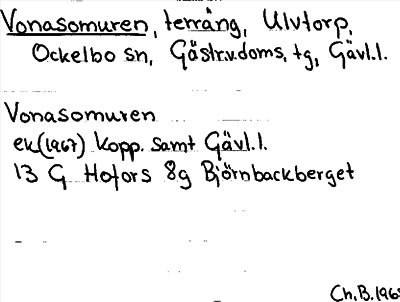 Vonasomuren, terräng, Ulvtorp,
Ockelbo sn, Gästr.v.doms. tg, Gävl.l.
Vonasomuren
ek(1967) Kopp. samt Gävl.l.
13 G Hofors 8g Björnbackberget
Ch.B.196